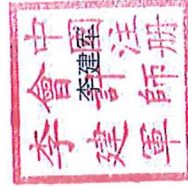 中國注册
會計師
李建軍
李建军